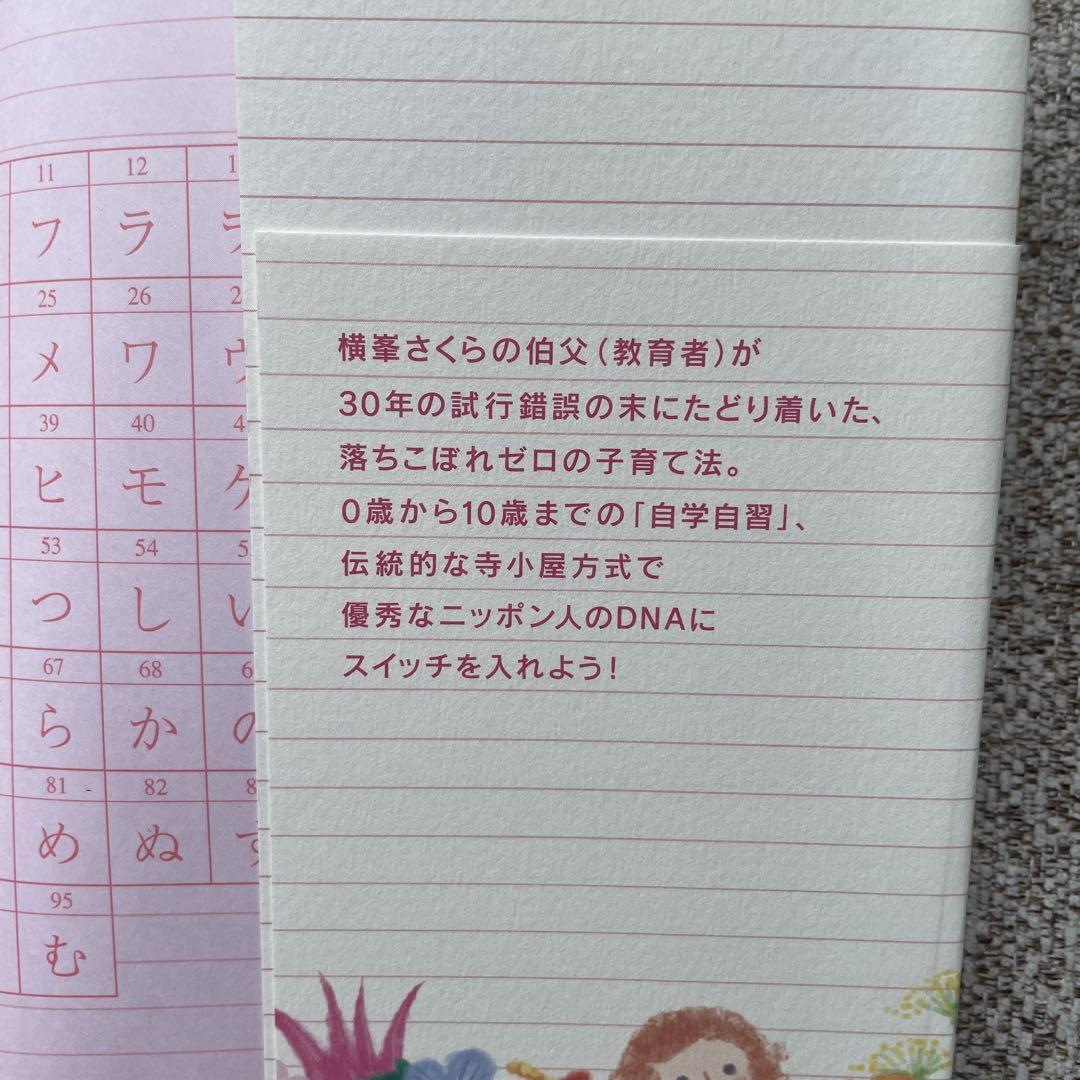 11 12
フ ラ
25 26
メ ワ
39 40
ヒ モ
53 54
つ し
67 68
ら か
81 82
め ぬ
95
む
横峯さくらの伯父（教育者）が
30年の試行錯誤の末にたどり着いた、
落ちこぼれゼロの子育て法。
0歳から10歳までの「自学自習」、
伝統的な寺小屋方式で
優秀なニッポン人のDNAに
スイッチを入れよう！